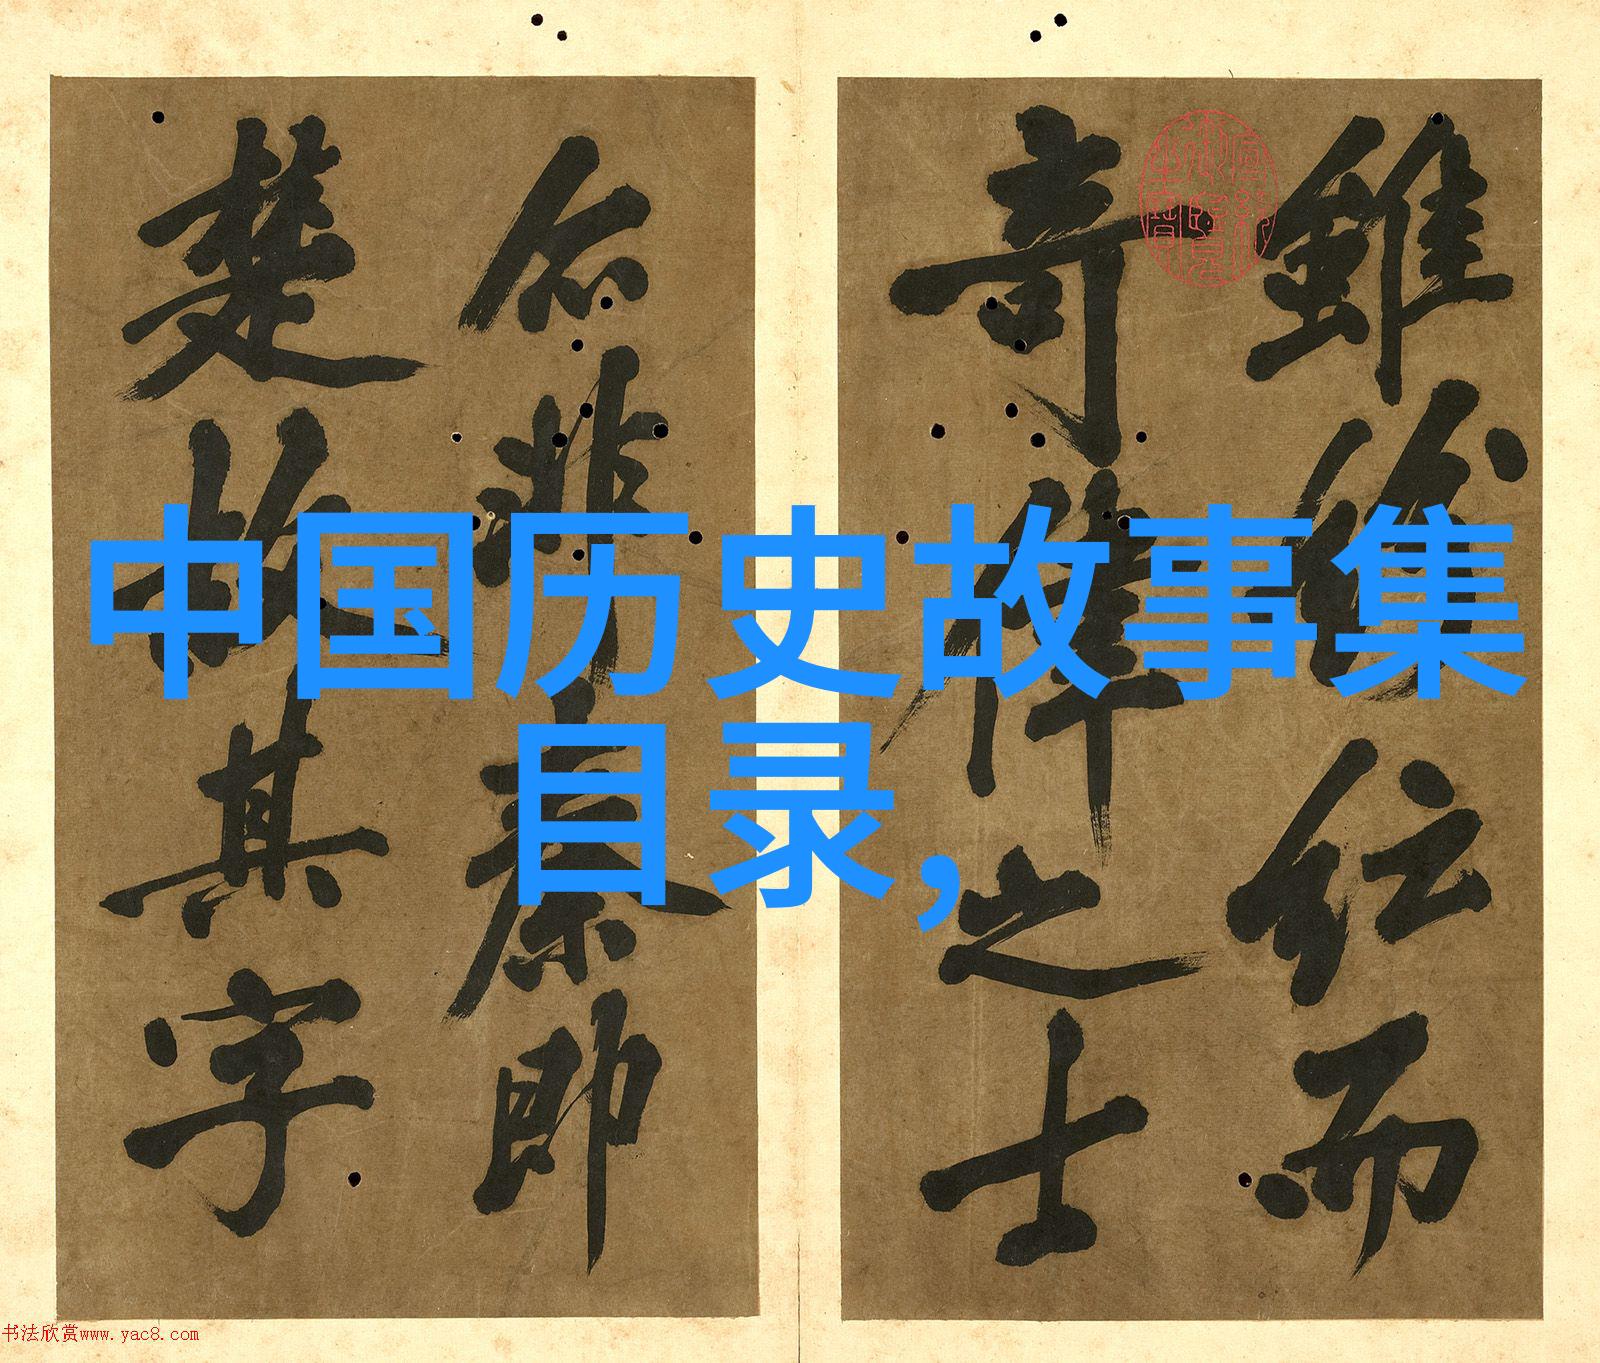 中国历史故事集
目录，
雖仕而
奇偉之士
非秦即
楚故其字
书法欣赏www.yac8.com